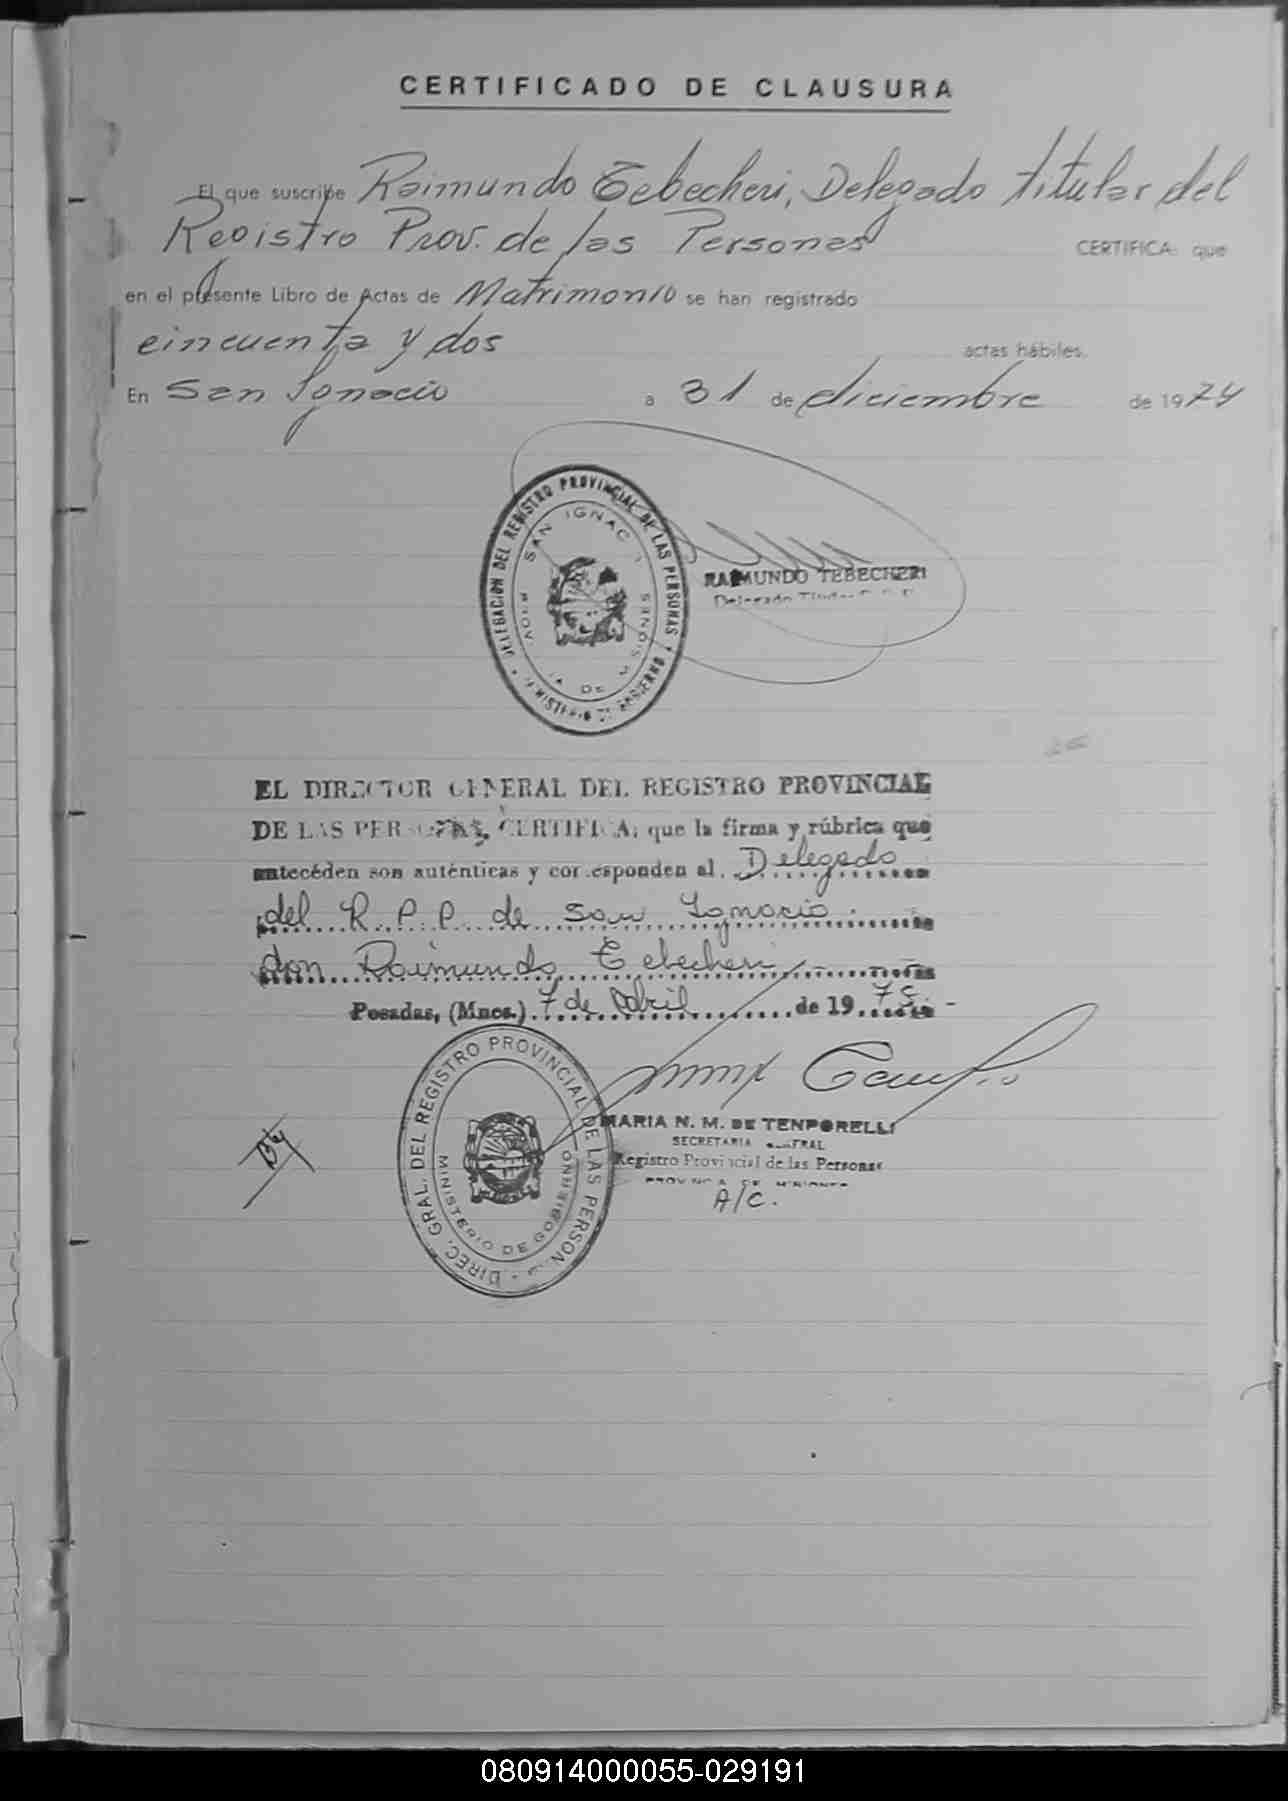 CERTIFICADO DE CLAUSURA
El que suscribe Raimundo Tebecheri, Delegado titular del
Registro Prov. de las Personas CERTIFICA: que
en el presente Libro de Actas de Matrimonio se han registrado
cincuenta y dos actas hábiles.
En San Ignacio a 31 de diciembre de 1974
DELEGACION DEL REGISTRO PROVINCIAL DE LAS PERSONAS
MINISTERIO DE GOBIERNO
SAN IGNACI
DE MISIONES
RAIMUNDO TEBECHERI
Delegado
EL DIRECTOR GENERAL DEL REGISTRO PROVINCIAL
DE LAS PERSONAS, CERTIFICA; que la firma y rúbrica que
antecéden son auténticas y corresponden al Delegado
del R. P. P. de San Ignacio
don Raimundo Tebecheri
Posadas, (Mnes.) 7 de Abril de 1975.-
DIREC. GRAL. DEL REGISTRO PROVINCIAL DE LAS PERSON
MINISTERIO DE GOBIERNO
MARIA N. M. DE TENPORELLI
SECRETARIA GENERAL
Registro Provincial de las Personas
PROVINCIA DE MISIONES
A/C.
080914000055-029191